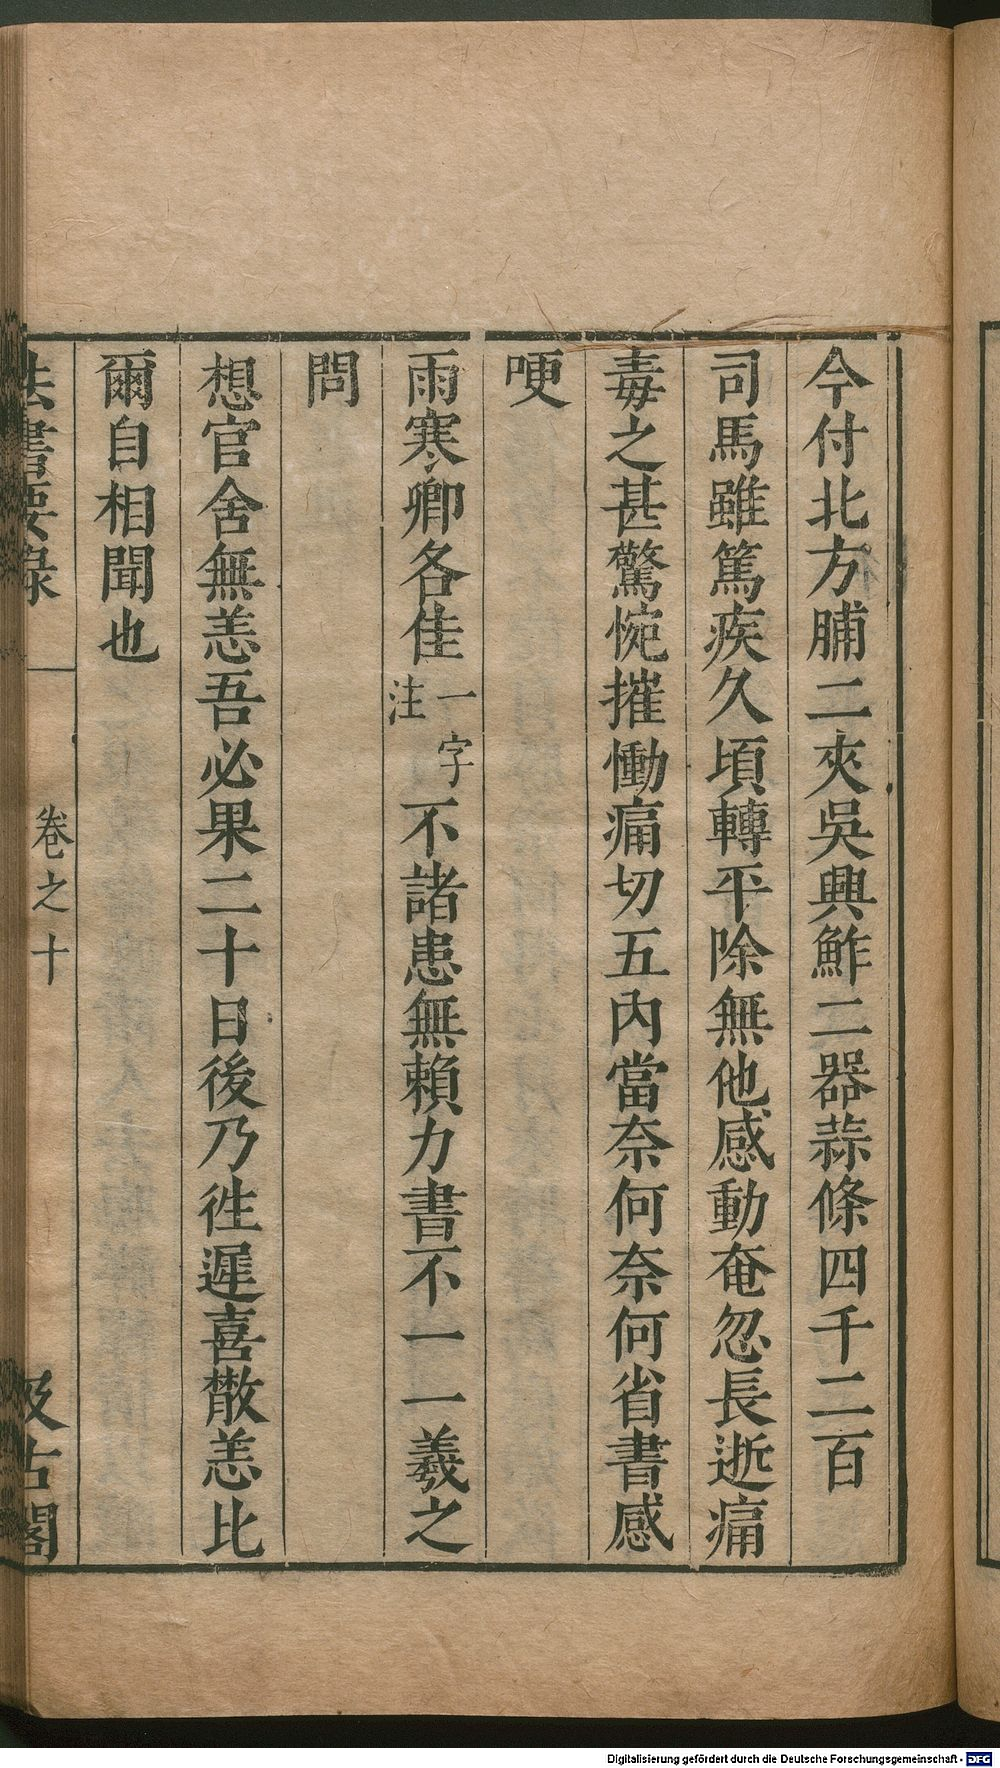 今付北方脯二夾吳興鮓二器蒜條四千二百
司馬雖篤疾久頃轉平除無他感動奄忽長逝痛
毒之甚驚惋摧慟痛切五內當奈何奈何省書感
哽
雨寒卿各佳一字注不諸患無賴力書不一一羲之
問
想官舍無恙吾必果二十日後乃徃遲喜散恙比
爾自相聞也
法書要錄
卷之十
汲古閣
Digitalisierung gefördert durch die Deutsche Forschungsgemeinschaft - DFG